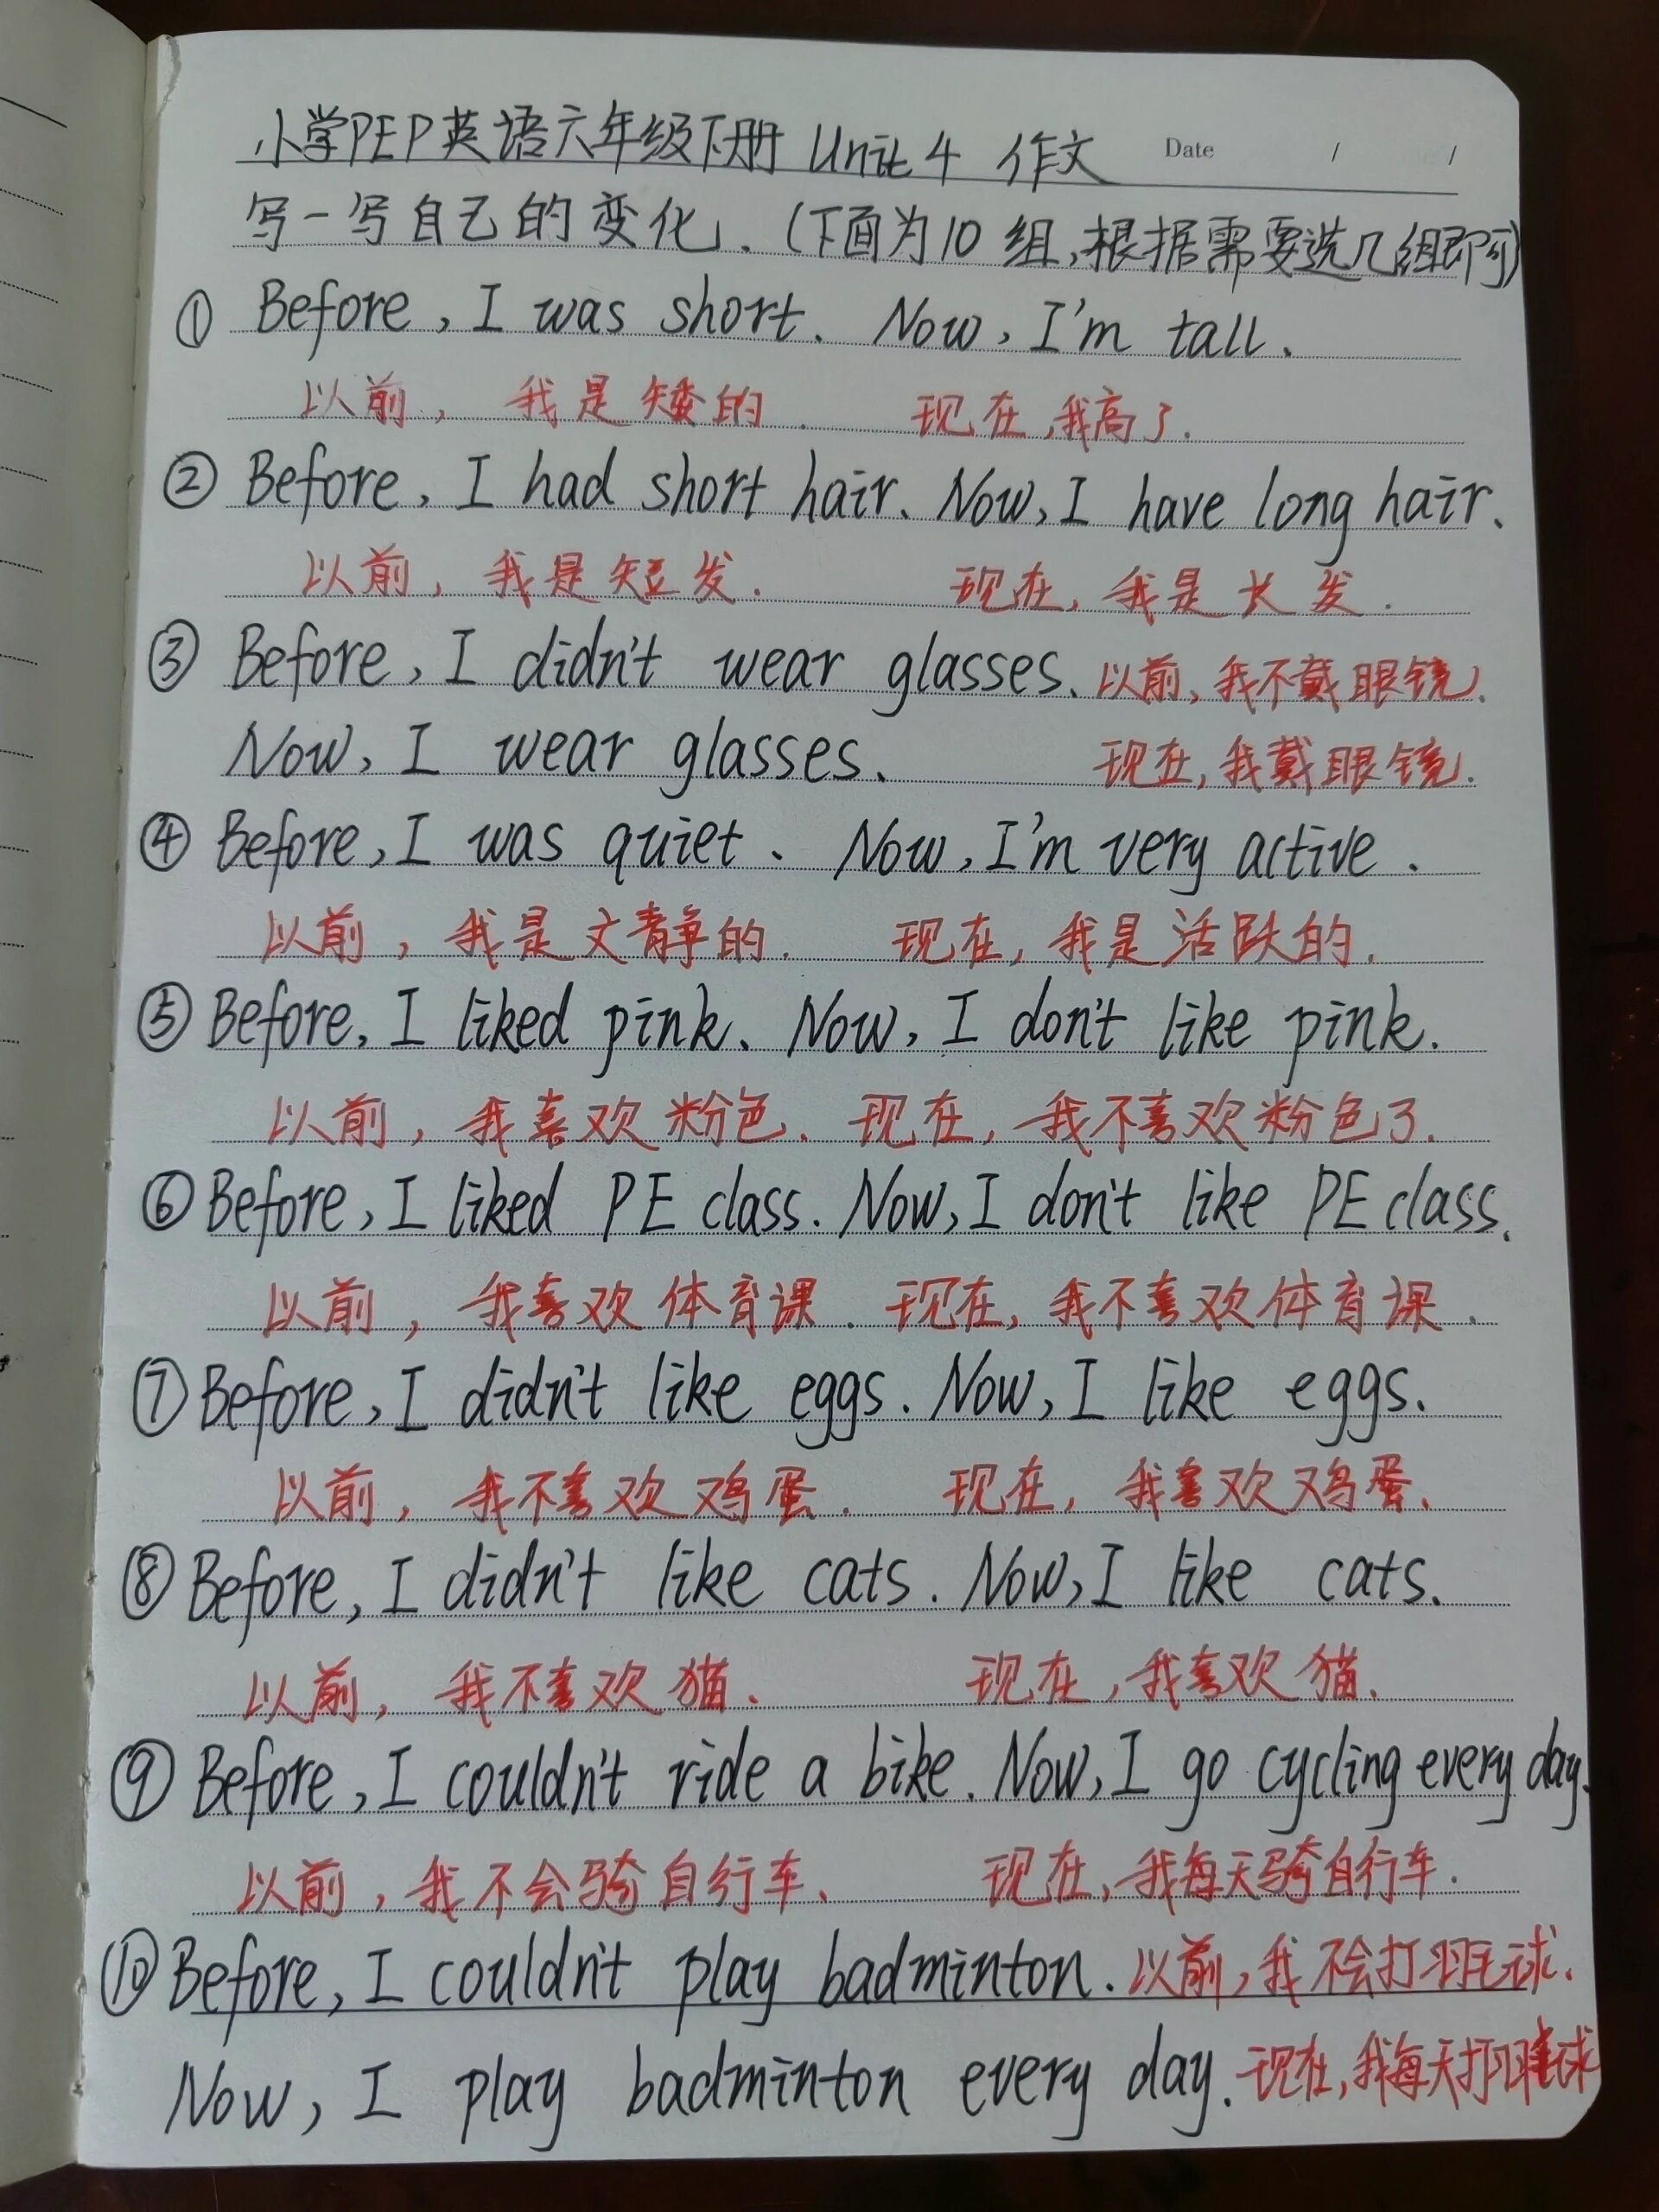 小学PEP英语六年级下册 Unit 4 作文 Date / /
写一写自己的变化.(下面为10组,根据需要选几组即可)
① Before, I was short. Now, I'm tall.
以前, 我是矮的. 现在,我高了.
② Before, I had short hair. Now, I have long hair.
以前, 我是短发. 现在, 我是长发.
③ Before, I didn't wear glasses. 以前,我不戴眼镜.
Now, I wear glasses. 现在,我戴眼镜.
④ Before, I was quiet. Now, I'm very active.
以前, 我是文静的. 现在, 我是活跃的.
⑤ Before, I liked pink. Now, I don't like pink.
以前, 我喜欢粉色. 现在, 我不喜欢粉色了.
⑥ Before, I liked PE class. Now, I don't like PE class.
以前, 我喜欢体育课. 现在, 我不喜欢体育课.
⑦ Before, I didn't like eggs. Now, I like eggs.
以前, 我不喜欢鸡蛋. 现在, 我喜欢鸡蛋.
⑧ Before, I didn't like cats. Now, I like cats.
以前, 我不喜欢猫. 现在, 我喜欢猫.
⑨ Before, I couldn't ride a bike. Now, I go cycling every day.
以前, 我不会骑自行车. 现在, 我每天骑自行车.
⑩ Before, I couldn't play badminton. 以前, 我不会打羽毛球.
Now, I play badminton every day. 现在,我每天打羽毛球